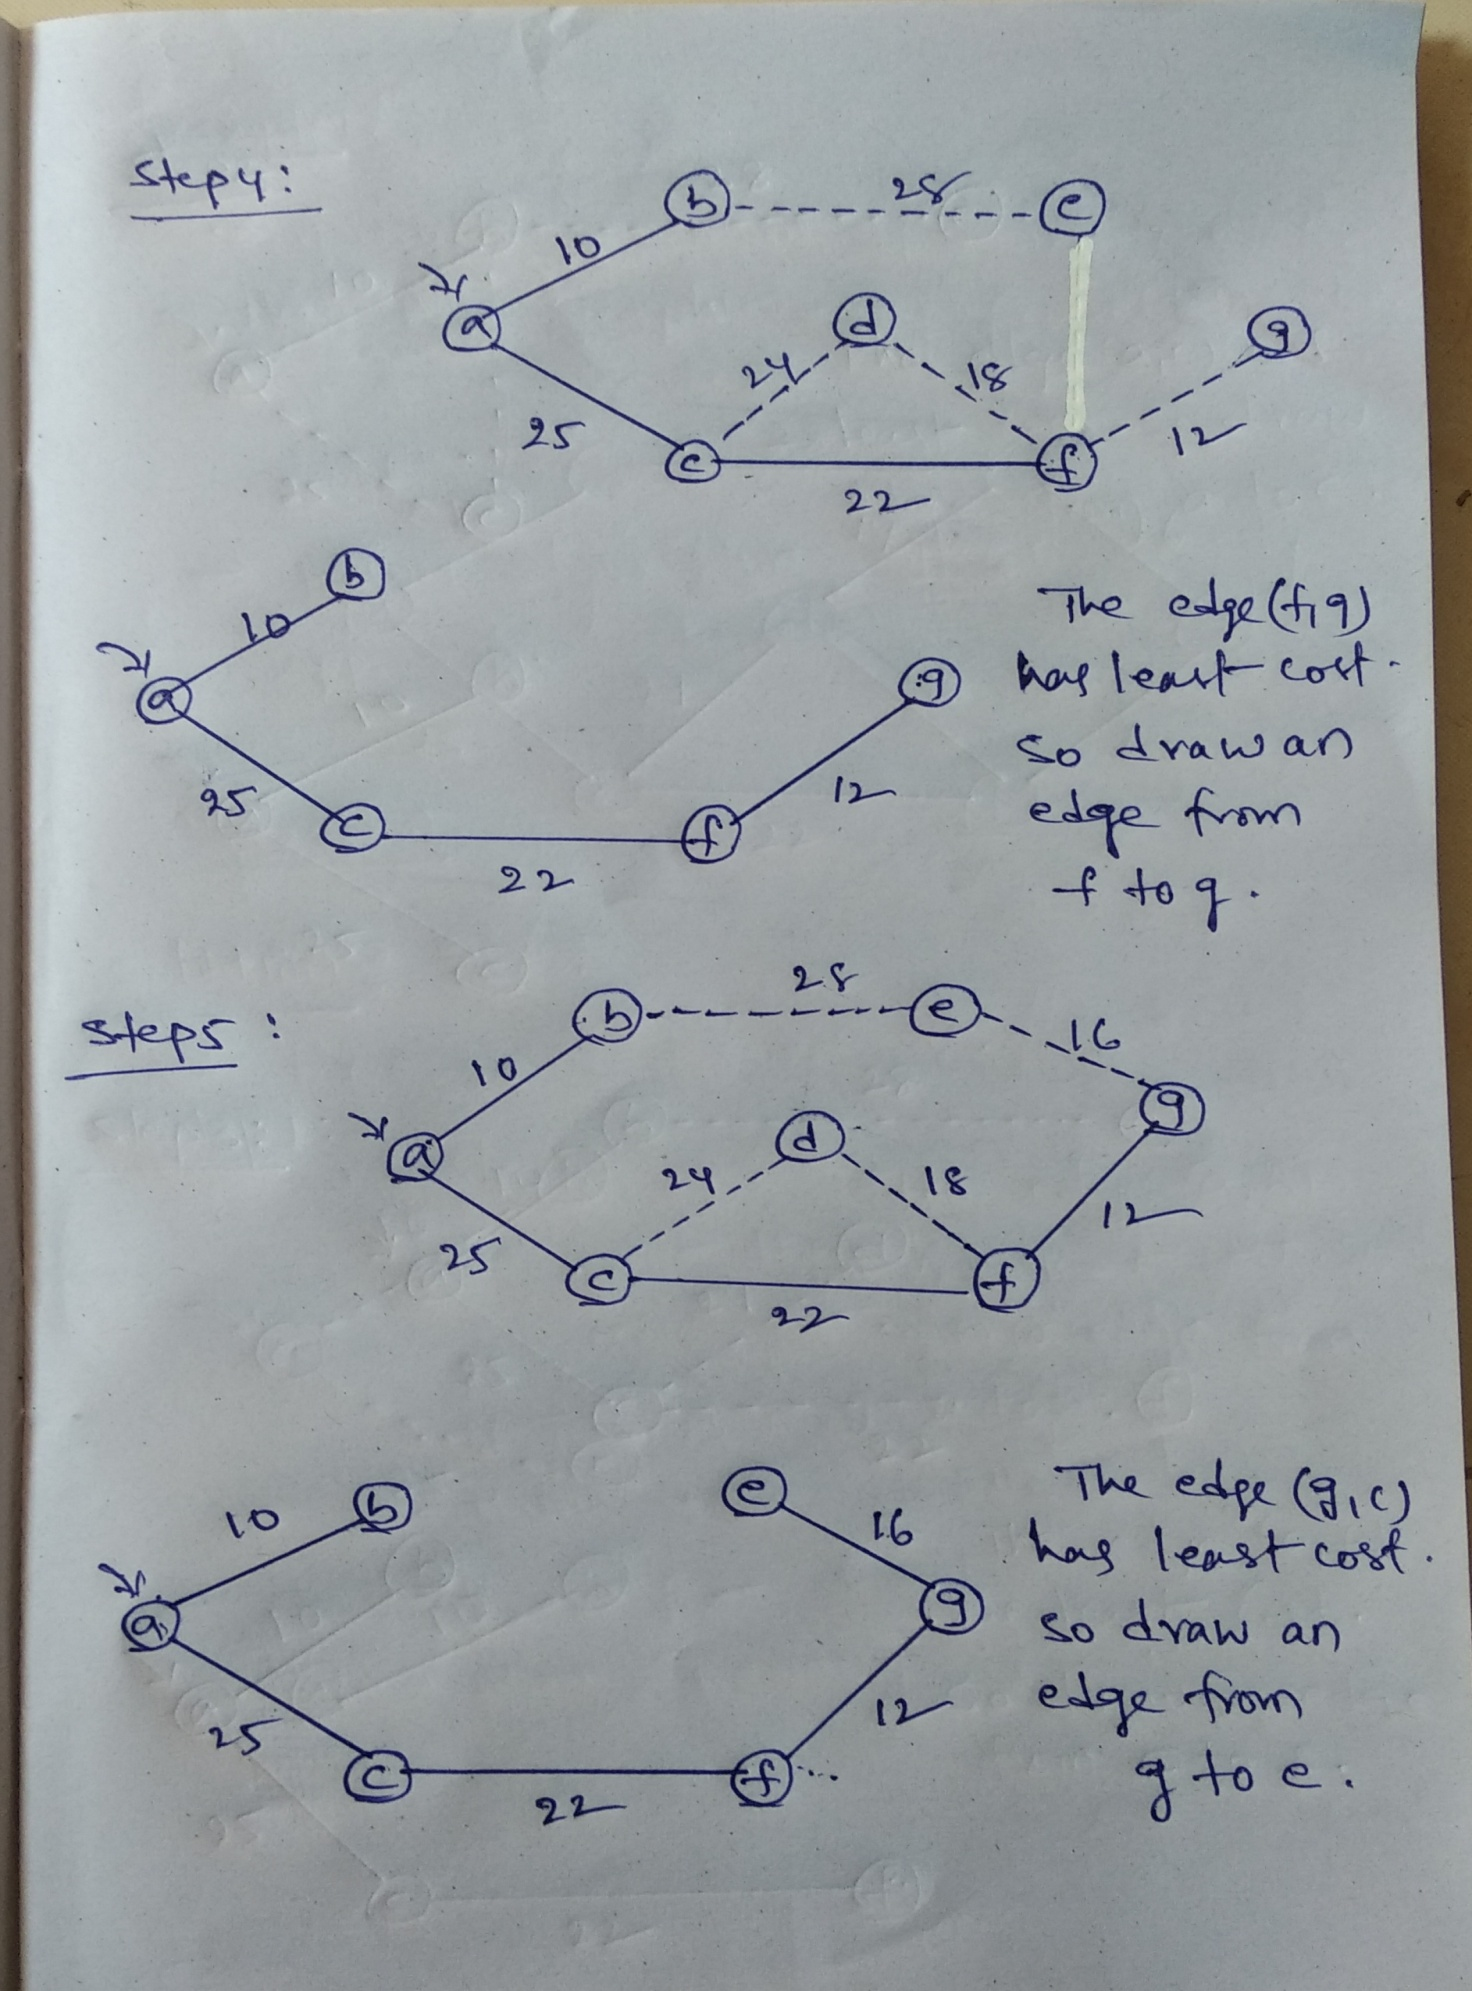 Step 4:
b 28 e
10
a d g
24 18
25 12
c f
22
b
10
a g
25 12
c f
22
The edge (f, g)
has least cost.
so draw an
edge from
f to g.
Step 5:
28
b e
16
10
g
a d
24 18
12
25
c f
22
b e
10 16
a g
25 12
c f
22
The edge (g, c)
has least cost.
so draw an
edge from
g to e.